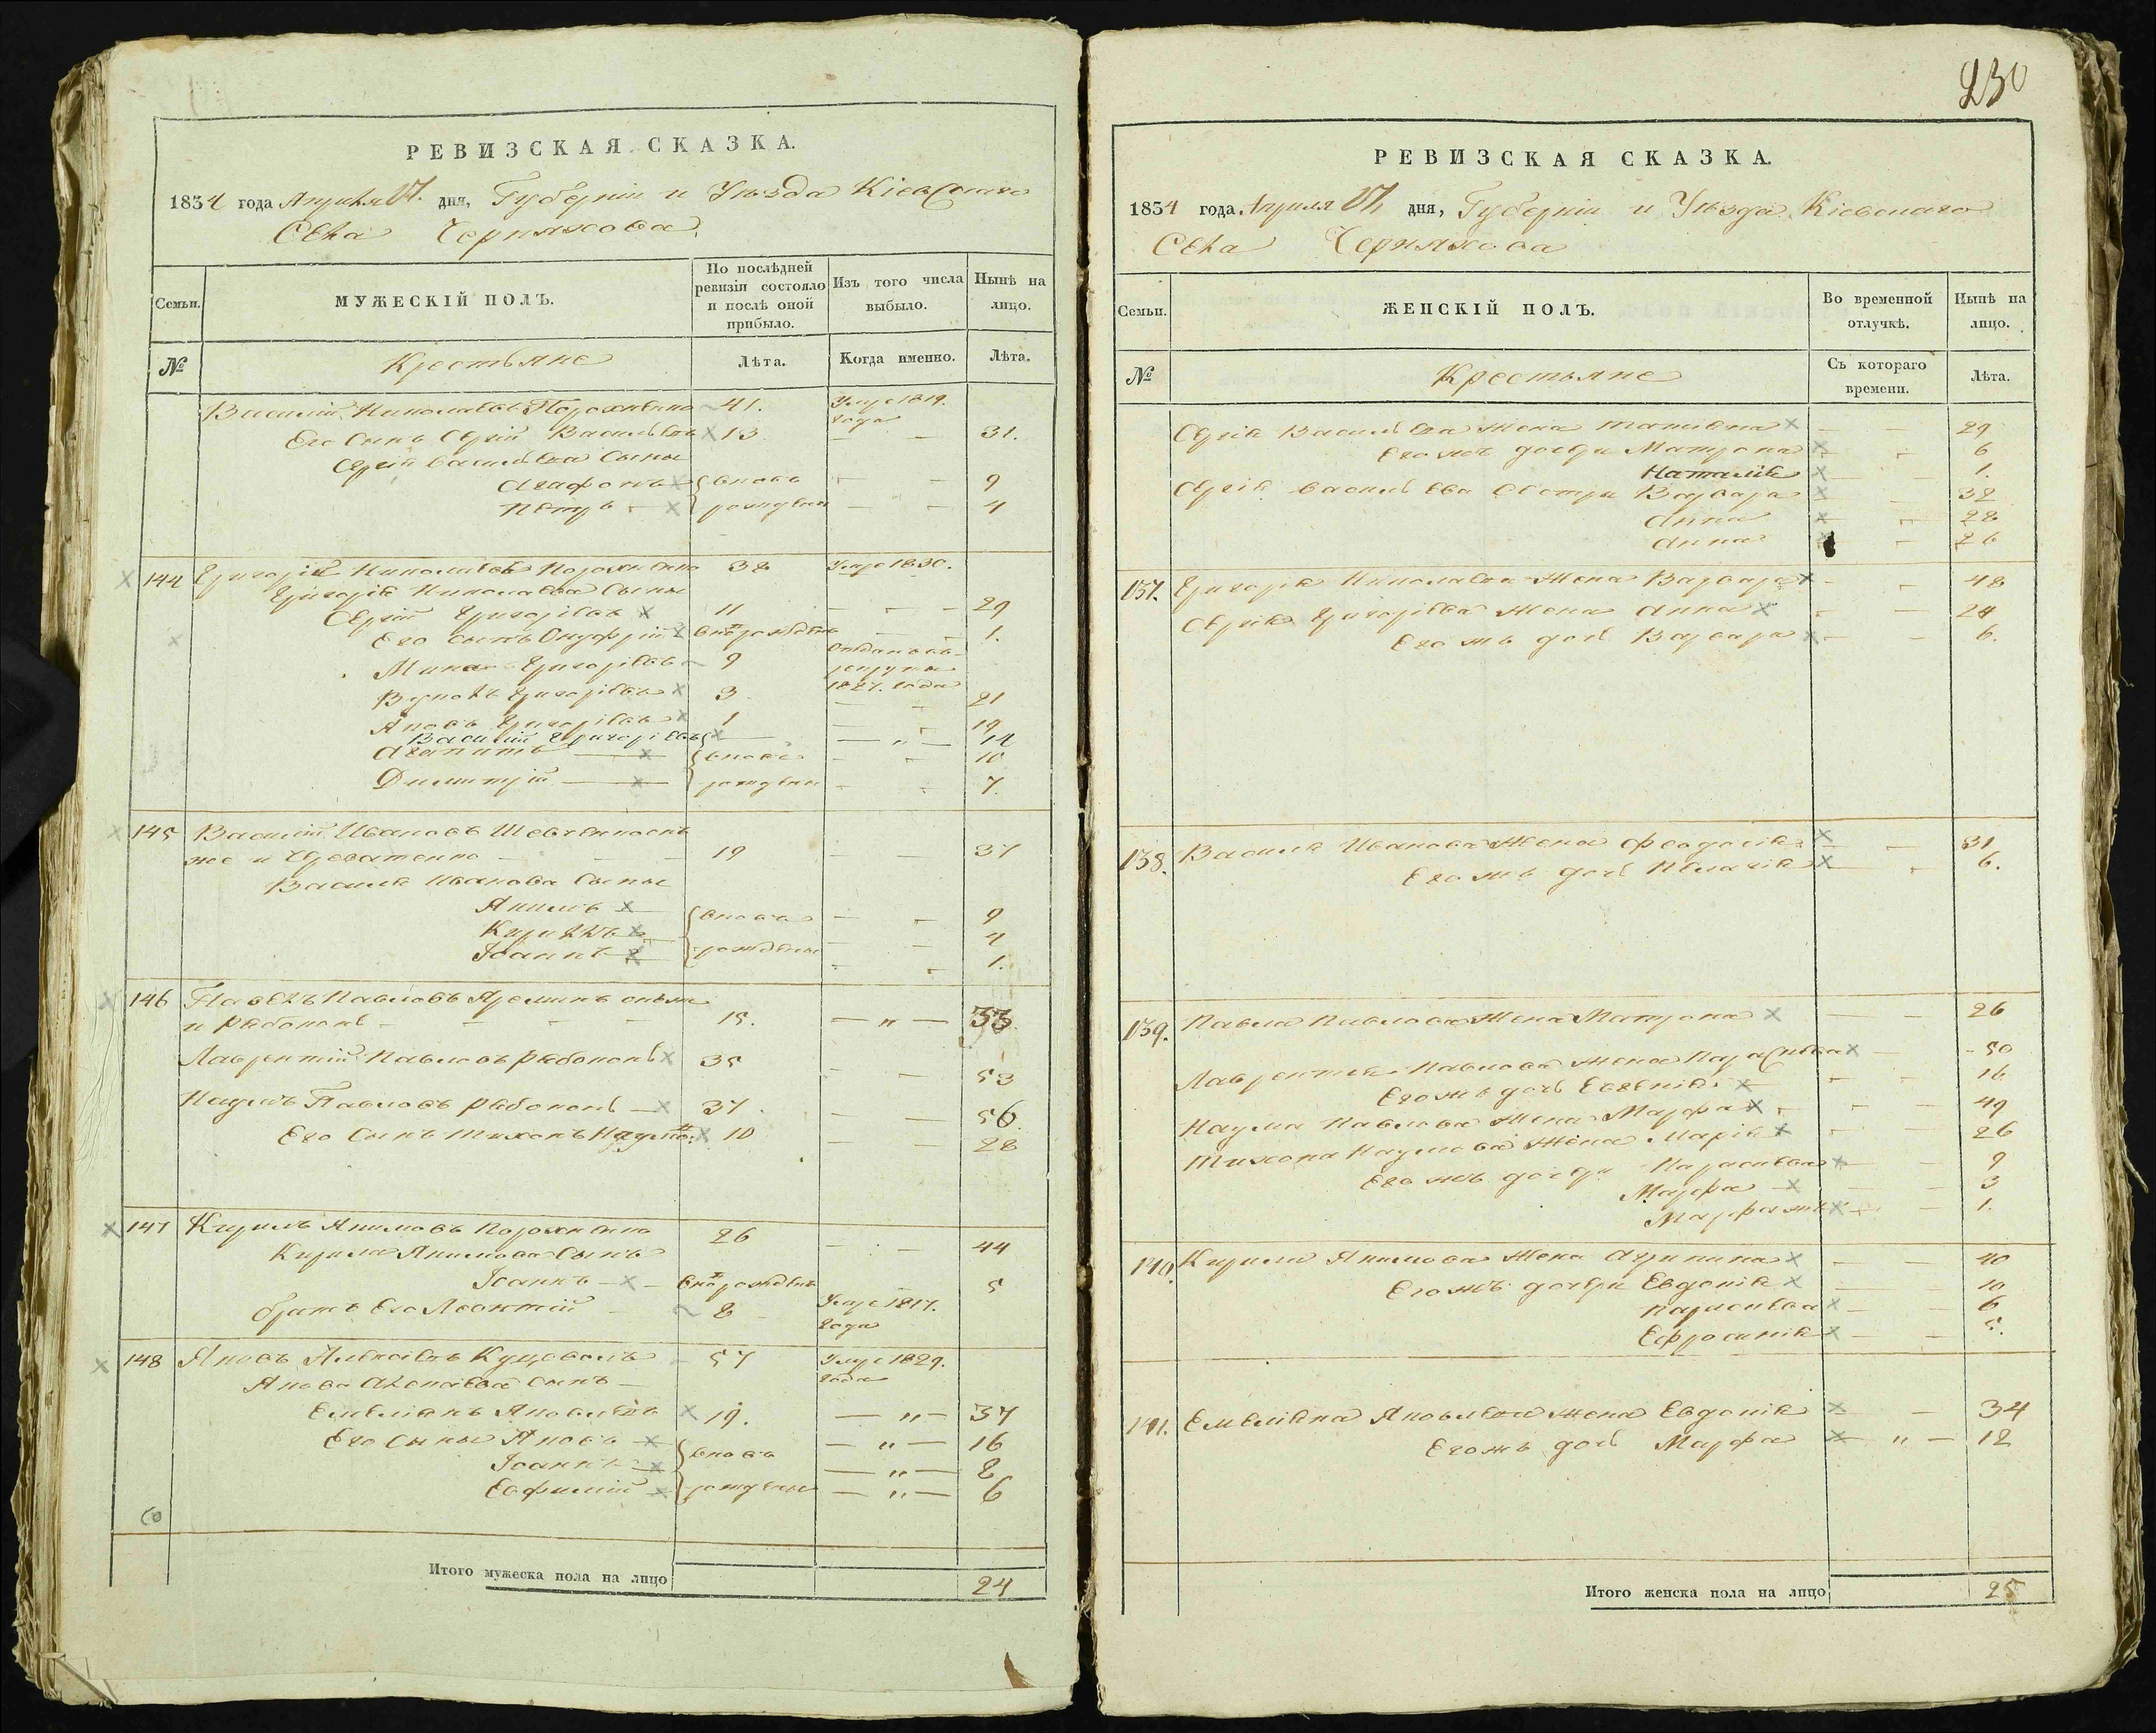 РЕВИЗСКАЯ СКАЗКА.
1834 года Апреля 17. дня, Губерніи и Уѣзда Кіевскаго
Села Черняхова.
Семьи. МУЖЕСКІЙ ПОЛЪ. По послѣдней ревизіи состояло и послѣ оной прибыло. Изъ того числа выбыло. Нынѣ на лицо.
№ Крестьяне Лѣта. Когда именно. Лѣта.
Василій Николаевъ 41. Умре 1819. года
Его сынъ Сергій Васильевъ 13 — — 31.
Сергія Васильева сыны
Агафонъ вновь — — 9
Петръ рождены — — 4
144 Григорій Николаевъ 38 Умре 1830.
Григорія Николаева сыны
Сергій Григоріевъ 11 — — 29
Его сынъ Онуфрій — 1.
Григоріевъ 9 1827. года
Григоріевъ 3 — — 21
Яковъ Григоріевъ 1 — 19
Василій Григоріевъ — " — 14
Агапитъ вновь — — 10
Димитрій рождены — — 7.
145 Василій Ивановъ Шевченко онъ
же и 19 — 37
Василія Иванова сыны
Якимъ вновь — — 9
Кирилъ — — 4
Іоаннъ рождены — — 1.
146 Павелъ Павловъ онъ же
и Рябоконь 15. — " — 33
Лаврентій Павловъ Рябоконь 35 — — 53
Наумъ Павловъ Рябоконь 37 — — 56.
Его сынъ Тихонъ Наумо: 10 — — 28
147 Кирилъ Якимовъ 26 — — 44
Кирила Якимова сынъ
Іоаннъ 5
братъ Его Леонтій 8 Умре 1817. года
148 Яковъ Алексѣевъ 57 Умре 1829. года
Якова Алексѣева сынъ
Емеліанъ Яковлевъ 19. — " — 37
Его сыны Яковъ вновь — " — 16
Іоаннъ — " — 8
Евфимій рождены — " — 6
Итого мужеска пола на лицо 24
230
РЕВИЗСКАЯ СКАЗКА.
1834 года Апреля 17 дня, Губерніи и Уѣзда Кіевскаго
Села Черняхова
Семьи. ЖЕНСКІЙ ПОЛЪ. Во временной отлучкѣ. Нынѣ на лицо.
№ Крестьяне Съ котораго времени. Лѣта.
Сергія Васильева жена Татіяна — — 29
Его жъ дочери Матрона — — 6
Наталія — — 1.
Сергія Васильева сестры Варвара — — 32
Анна — — 28
Анна — — 26
137. Григорія Николаева жена Варвара — — 48
Сергія Григоріева жена Анна — — 24
Его жъ дочь Варвара — — 6.
138. Василія Иванова жена Феодосія — — 31
Его жъ дочь Пелагія — — 6.
139. Павла Павлова жена Матрона — — 26
Лаврентія Павлова жена Параскева — 50
Его жъ дочь Евгенія — — 16
Наума Павлова жена Марфа — — 49
Тихона Наумова жена Марія — — 26
Его жъ дочери Параскева — — 9
Марфа — — 3
Марфа жъ — — 1.
140. Кирила Якимова жена Агрипина — — 40
Его жъ дочери Евдокія — — 10
Параскева — — 6
Ефросинія — — 5.
141. Емеліяна Яковлева жена Евдокія — — 34
Его жъ дочь Марфа — " — 12
Итого женска пола на лицо 25